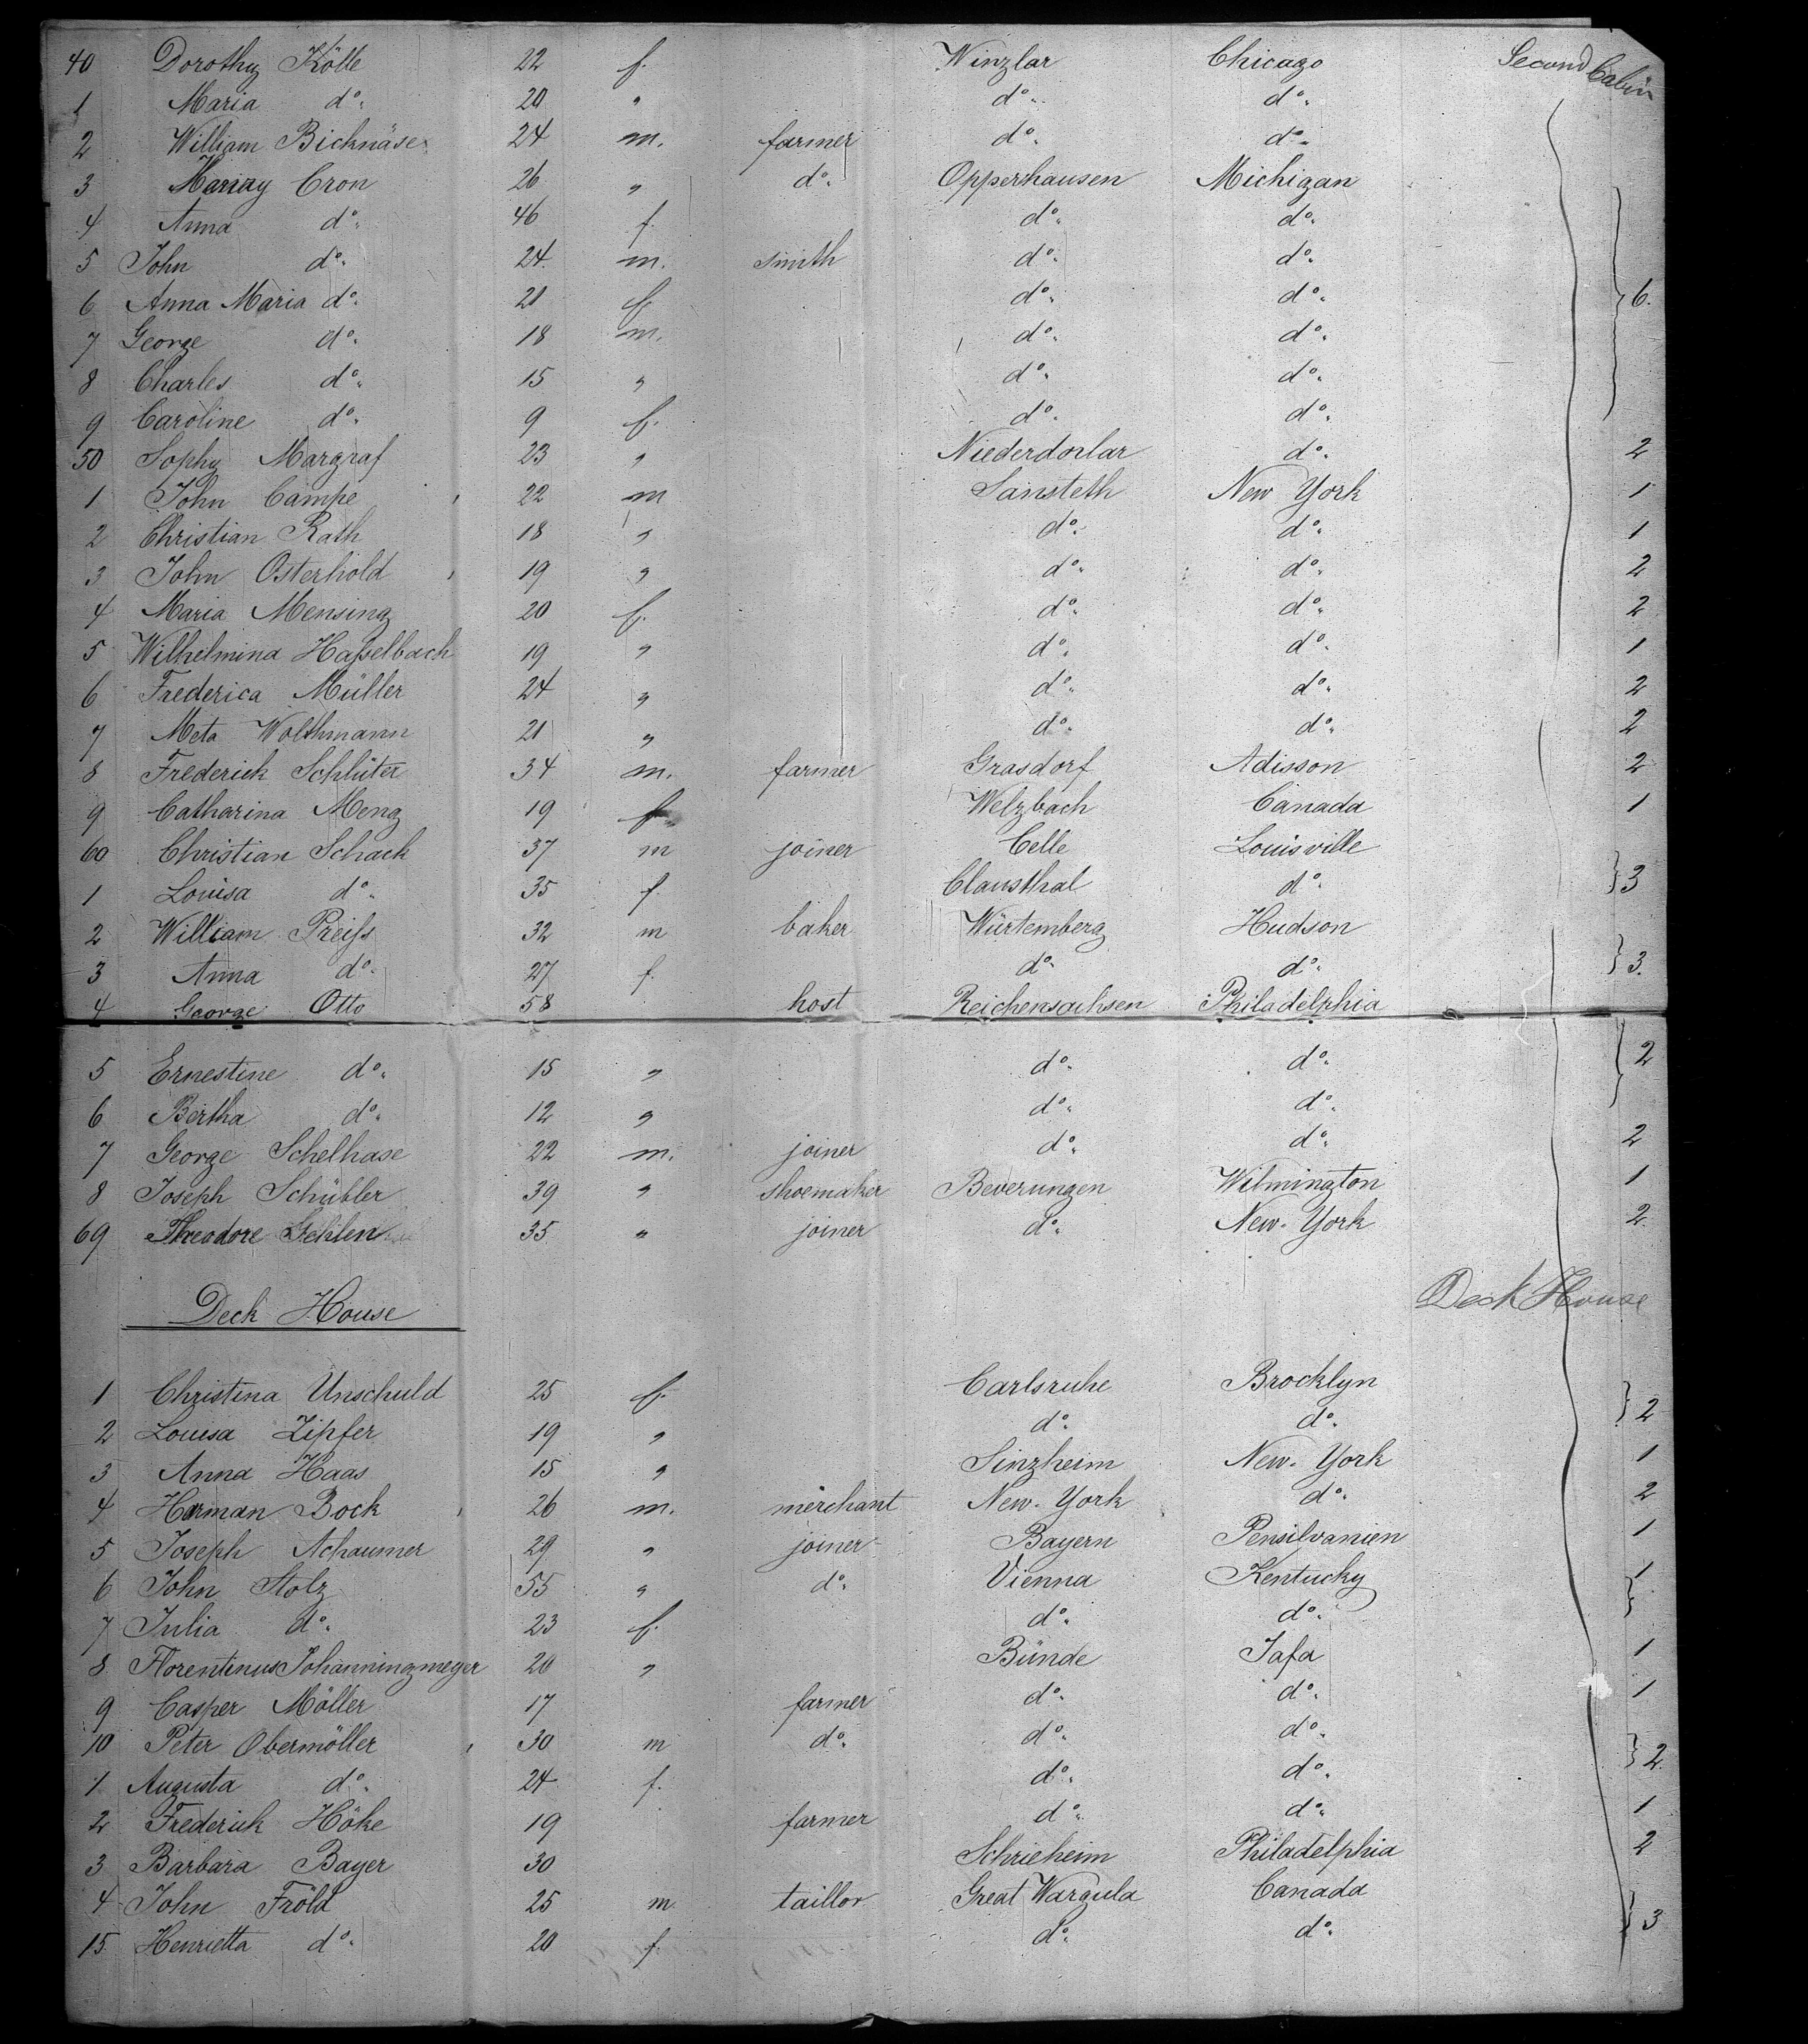 Second Cabin
40 Dorothy Kölle 22 f. Winzlar Chicago
1 Maria do. 20 " do. do.
2 William Bicknäse 24 m. farmer do. do.
3 Cron 26 " do. Opperhausen Michigan
4 Anna do. 46 f. do. do.
5 John do. 24 m. smith do. do.
6 Anna Maria do. 21 f. do. do. 6.
7 George do. 18 m. do. do.
8 Charles do. 15 " do. do.
9 Caroline do. 9 f. do. do.
50 Sophy Margraf 23 " Niederdorlar do. 2
1 John Campe 22 m Sansteth New York 1
2 Christian Rath 18 " do. do. 1
3 John Osterhold 19 " do. do. 2
4 Maria Mensing 20 f. do. do. 2
5 Wilhelmina Haſselbach 19 " do. do. 1
6 Frederica Müller 24 " do. do. 2
7 Meta Wolthmann 21 " do. do. 2
8 Frederick Schlüter 34 m. farmer Grasdorf Adisson 2
9 Catharina Meng 19 f. Welzbach Canada 1
60 Christian Schack 37 m joiner Celle Louisville
1 Louisa do. 35 f. Clausthal do. 3
2 William Preiſs 32 m baker Würtemberg Hudson
3 Anna do. 27 f. do. do. 3.
4 George Otto 58 host Reichensachsen Philadelphia
5 Ernestine do. 15 " do. do. 2
6 Bertha do. 12 " do. do.
7 George Schelhase 22 m. joiner do. do. 2
8 Joseph Schübler 39 " shoemaker Beverungen Wilmington 1
69 Theodore Gehlen 35 " joiner do. New-York 2.
Deck House Deck House
1 Christina Unschuld 25 f. Carlsruhe Brocklyn
2 Louisa Zipfer 19 " do. do. 2
3 Anna Haas 15 " Sinzheim New-York 1
4 Harman Bock 26 m. merchant New-York do. 2
5 Joseph Achaumer 29 " joiner Bayern Pensilvanien 1
6 John Stolz 55 " do. Vienna Kentucky 1
7 Julia do. 23 f. do. do.
8 Florentinus Johanningmeyer 20 " Bünde Jafa 1
9 Casper Möller 17 farmer do. do. 1
10 Peter Obermöller 30 m do. do. do.
1 Augusta do. 24 f. do. do. 2
2 Frederick Höke 19 farmer do. do. 1
3 Barbara Bayer 30 Schrieheim Philadelphia 2
4 John Fröld 25 m. taillor Great Wargula Canada
15 Henrietta do. 20 f. do. do. 3